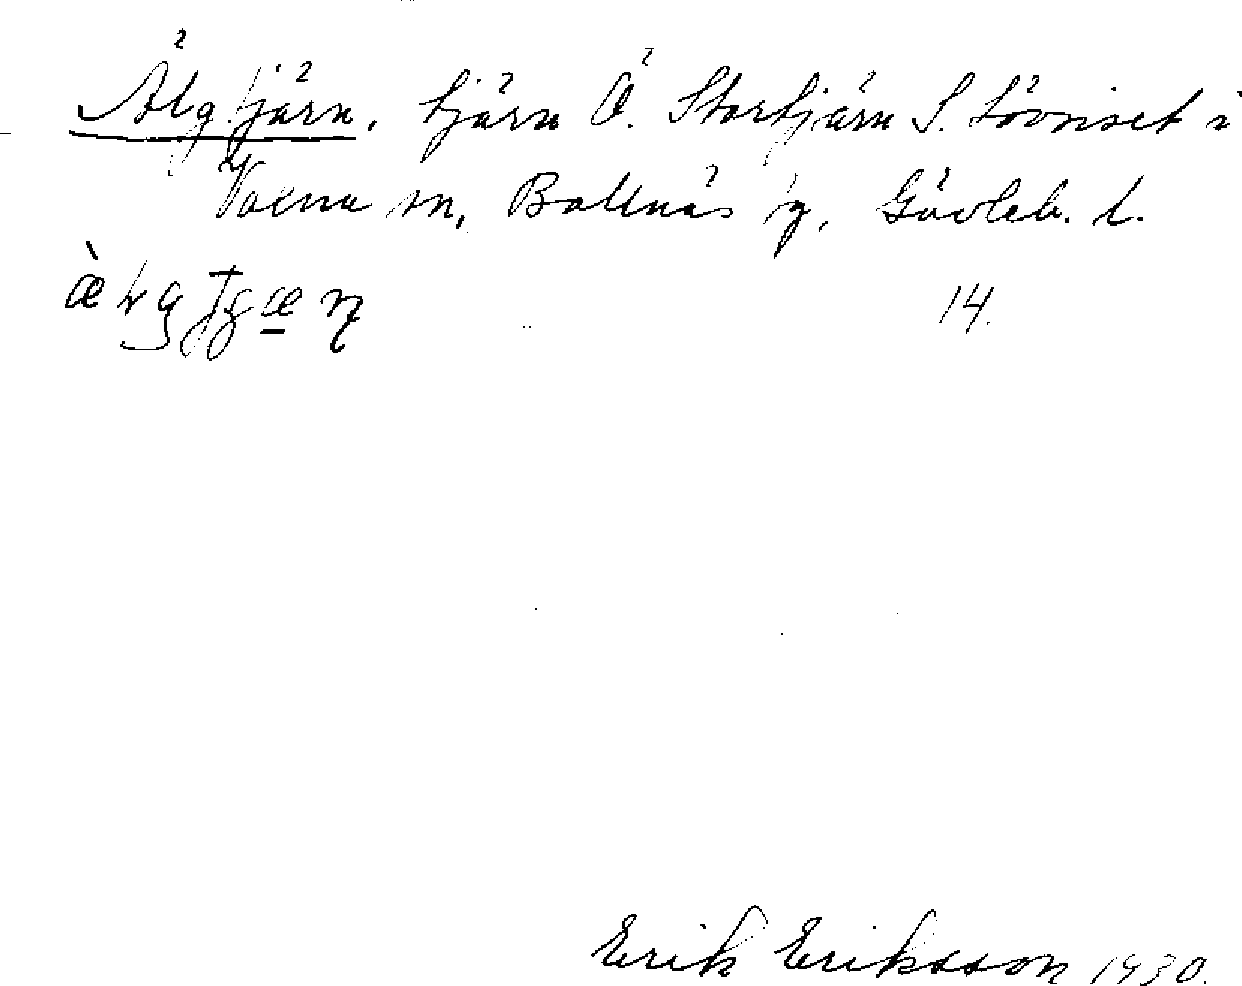 Älgtjärn, tjärn Ö. Stortjärn S. Lövriset i
Voxna sn, Bollnäs tg, Gävleb. l.
14.
Erik Eriksson 1930.